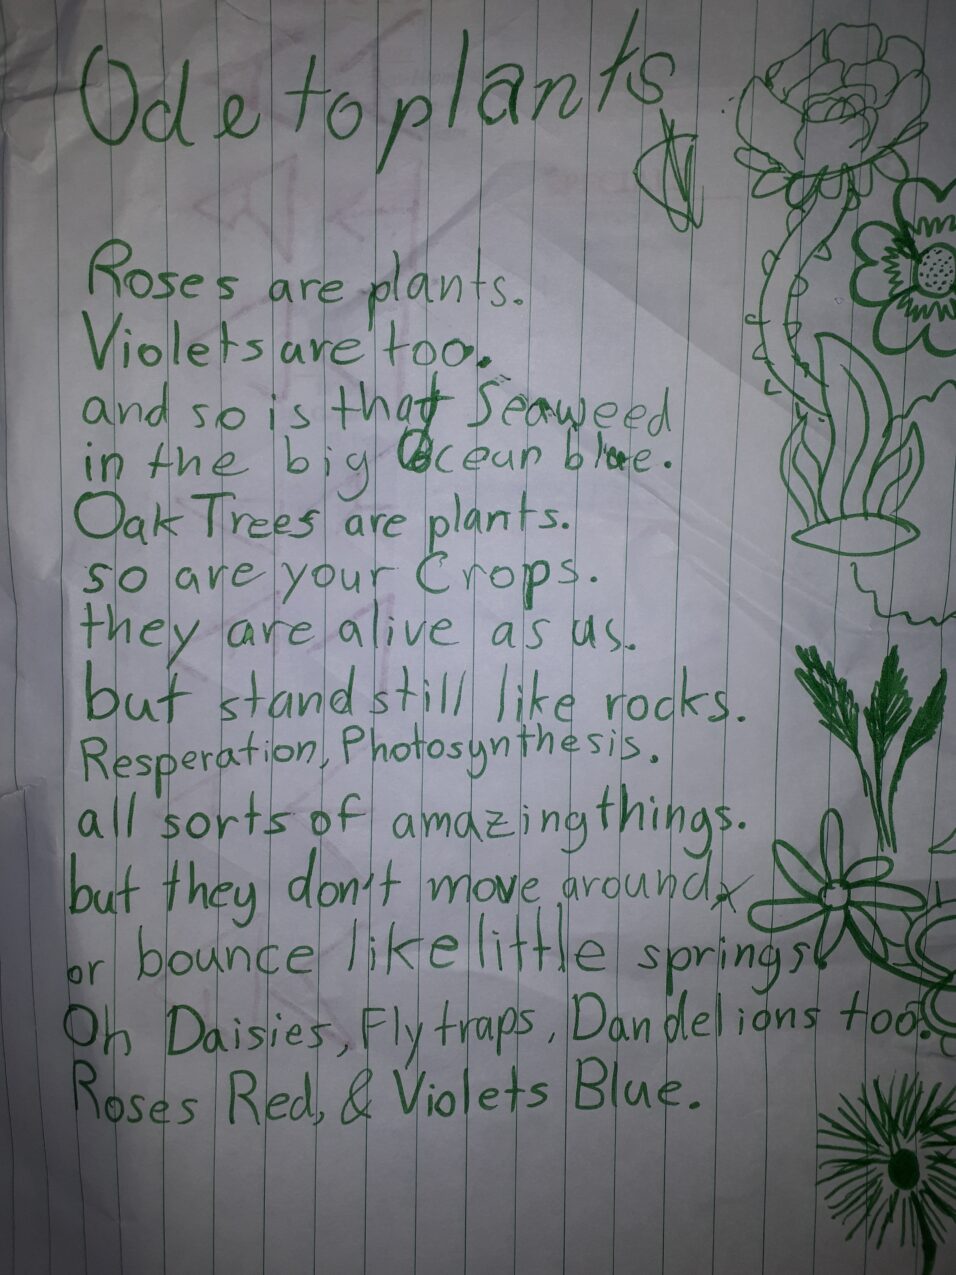 Ode to plants
Roses are plants.
Violets are too.
and so is that Seaweed
in the big Ocean blue.
Oak Trees are plants.
so are your Crops.
they are alive as us.
but stand still like rocks.
Resperation, Photosynthesis.
all sorts of amazing things.
but they don't move around
or bounce like little springs.
Oh Daisies, Fly traps, Dandelions too.
Roses Red, & Violets Blue.